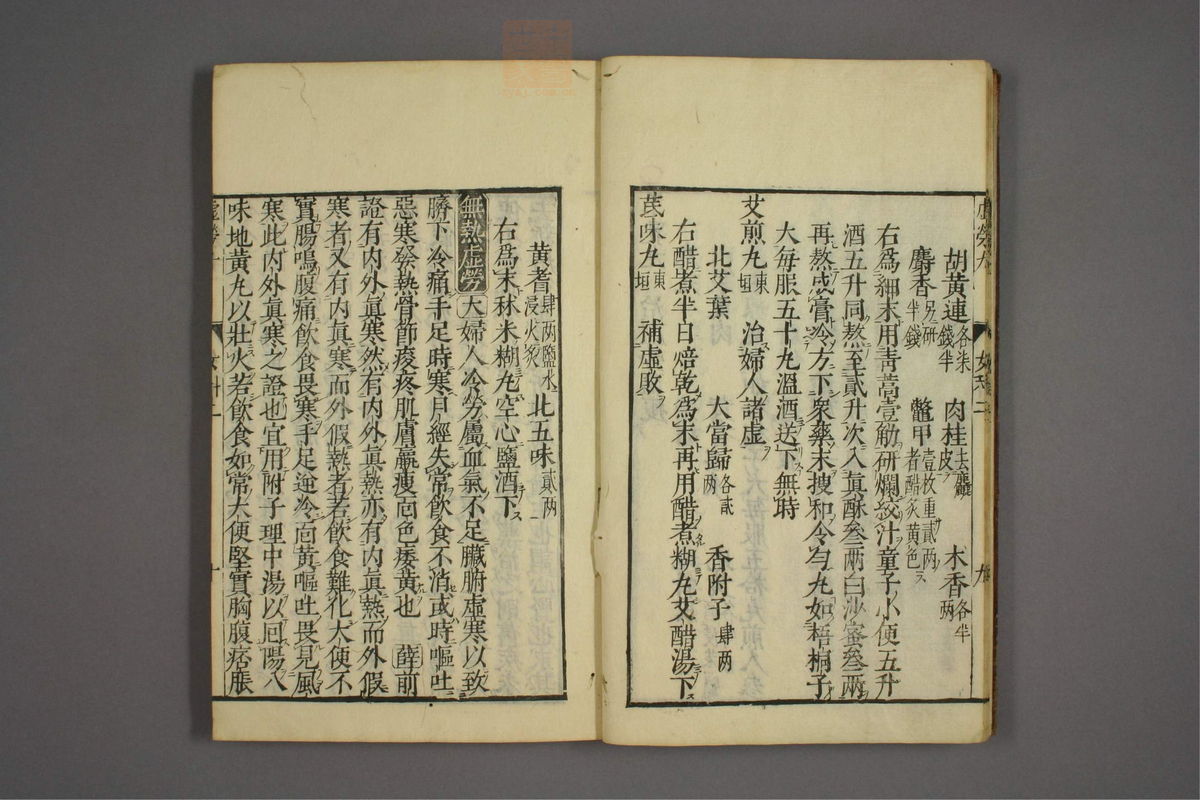 胡黃連各柒錢半　肉桂去麤皮　木香各半兩
麝香另研半錢　鼈甲壹枚重貳兩者醋炙黃色
右爲細末用青蒿壹觔研爛絞汁童子小便五升
酒五升同熬至貳升次入眞酥叁兩白沙蜜叁兩
再熬成膏冷方下衆藥末搜和令勻丸如梧桐子
大每服五十丸溫酒送下無時
艾煎丸東垣　治婦人諸虛
北艾葉　大當歸各貳兩　香附子肆兩
右醋煮半日焙乾爲末再用醋煮糊丸艾醋湯下
茋味丸東垣　補虛敗
黃耆肆兩鹽水浸火炙　北五味貳兩
右爲末秫米糊丸空心鹽酒下
無熱虛勞　大婦人冷勞屬血氣不足臟腑虛寒以致
臍下冷痛手足時寒月經失常飲食不消或時嘔吐
惡寒發熱骨節痠疼肌膚羸瘦面色痿黃也　薛前
證有內外眞寒然有內外眞熱亦有內眞熱而外假
寒者又有內眞寒而外假熱者若飲食難化大便不
實腸鳴腹痛飲食畏寒手足逆冷面黃嘔吐畏見風
寒此內外眞寒之證也宜用附子理中湯以回陽八
味地黃丸以壯火若飲食如常大便堅實胸腹痞脹